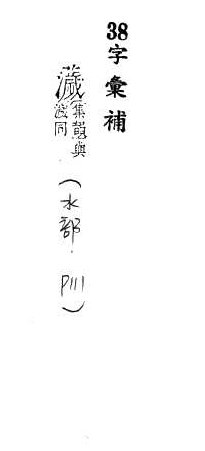 38字彙補
集韻與
同
(水部.P111)